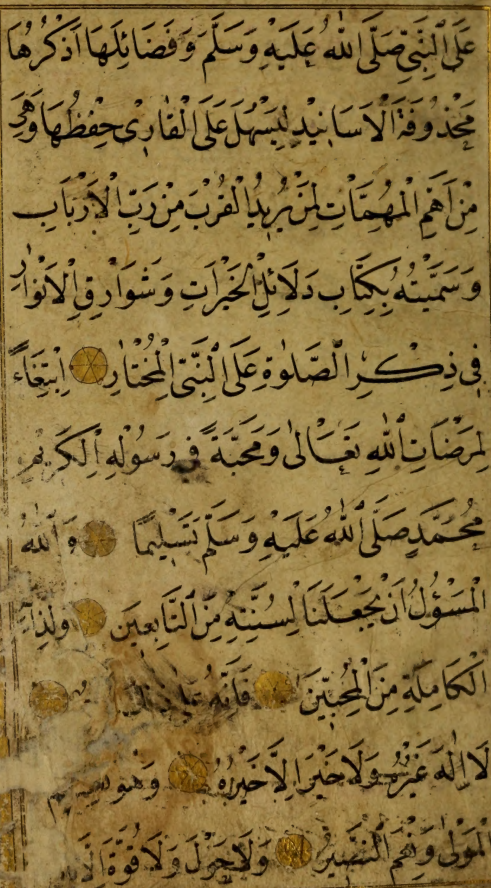 عَلَى ٱلنَّبِيِّ صَلَّى ٱللهُ عَلَيْهِ وَسَلَّمَ وَفَضَائِلَهَا اَذْكُرُهَا
مَحْذُوفَةَ ٱلْاَسَانِيدِ لِيَسْهُلَ عَلَى ٱلْقَارِئِ حِفْظُهَا وَهِيَ
مِنْ اَهَمِّ الْمُهِمَّاتِ لِمَنْ يُرِيدُ الْقُرْبَ مِنْ رَبِّ الْاَرْبَابِ
وَسَمَّيْتُهُ بِكِتَابِ دَلَائِلِ الْخَيْرَاتِ وَشَوَارِقِ الْاَنْوَارِ
فِي ذِكْرِ ٱلصَّلٰوةِ عَلَى ٱلنَّبِيِّ الْمُخْتَارِ اِبْتِغَاءً
لِمَرْضَاتِ ٱللهِ تَعَالٰى وَمَحَبَّةً فِي رَسُولِهِ الْكَرِيمِ
مُحَمَّدٍ صَلَّى ٱللهُ عَلَيْهِ وَسَلَّمَ تَسْلِيمًا وَٱللهُ
الْمَسْؤُلُ اَنْ يَجْعَلَنَا لِسُنَّتِهِ مِنَ ٱلتَّابِعِينَ وَلِذَاتِهِ
الْكَامِلَةِ مِنَ الْمُحِبِّينَ فَاِنَّهُ عَلٰى
لَا اِلٰهَ غَيْرُهُ وَلَا خَيْرَ اِلَّا خَيْرُهُ وَهُوَ نِعْمَ
الْمَوْلٰى وَنِعْمَ ٱلنَّصِيرُ وَلَا حَوْلَ وَلَا قُوَّةَ اِلَّا